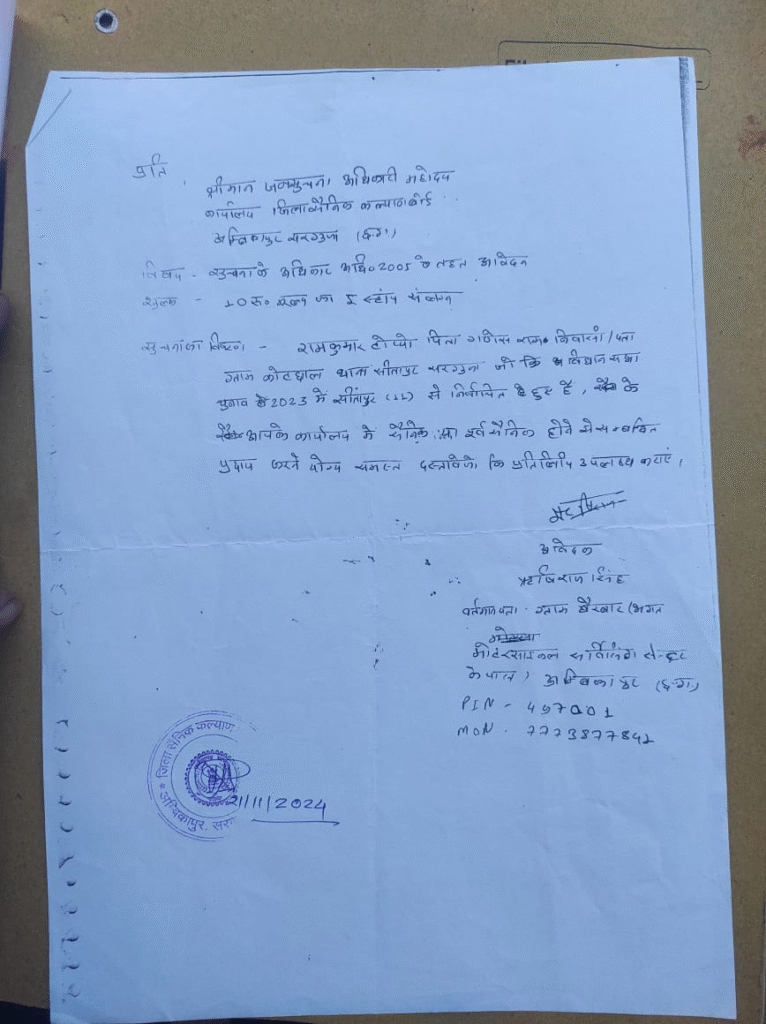 प्रति,
श्रीमान जनसूचना अधिकारी महोदय
कार्यालय जिला सैनिक कल्याण बोर्ड
अम्बिकापुर सरगुजा (छ.ग.)
विषय - सूचना के अधिकार अधि० 2005 के तहत आवेदन
शुल्क - 10 रु० मूल्य का ई स्टांप संलग्न
सूचना का विवरण - रामकुमार टोप्पो पिता गणेश राम निवासी / पता
ग्राम कोटछाल थाना सीतापुर सरगुजा जो कि विधानसभा
चुनाव 2023 में सीतापुर (11) से निर्वाचित हुए हैं, के
आपके कार्यालय में सैनिक / पूर्व सैनिक होने से सम्बंधित
प्रदाय करने योग्य समस्त दस्तावेजो कि प्रतिलिपि उपलब्ध कराएं।
आवेदक
ऋषिराज सिंह
वर्तमान पता - ग्राम खैरबार (भगत
मोटरसाइकल सर्विसिंग सेन्टर
के पास) अम्बिकापुर (छ.ग.)
PIN - 497001
MON. 7773877841
जिला सैनिक कल्याण
अम्बिकापुर, सर
21/11/2024